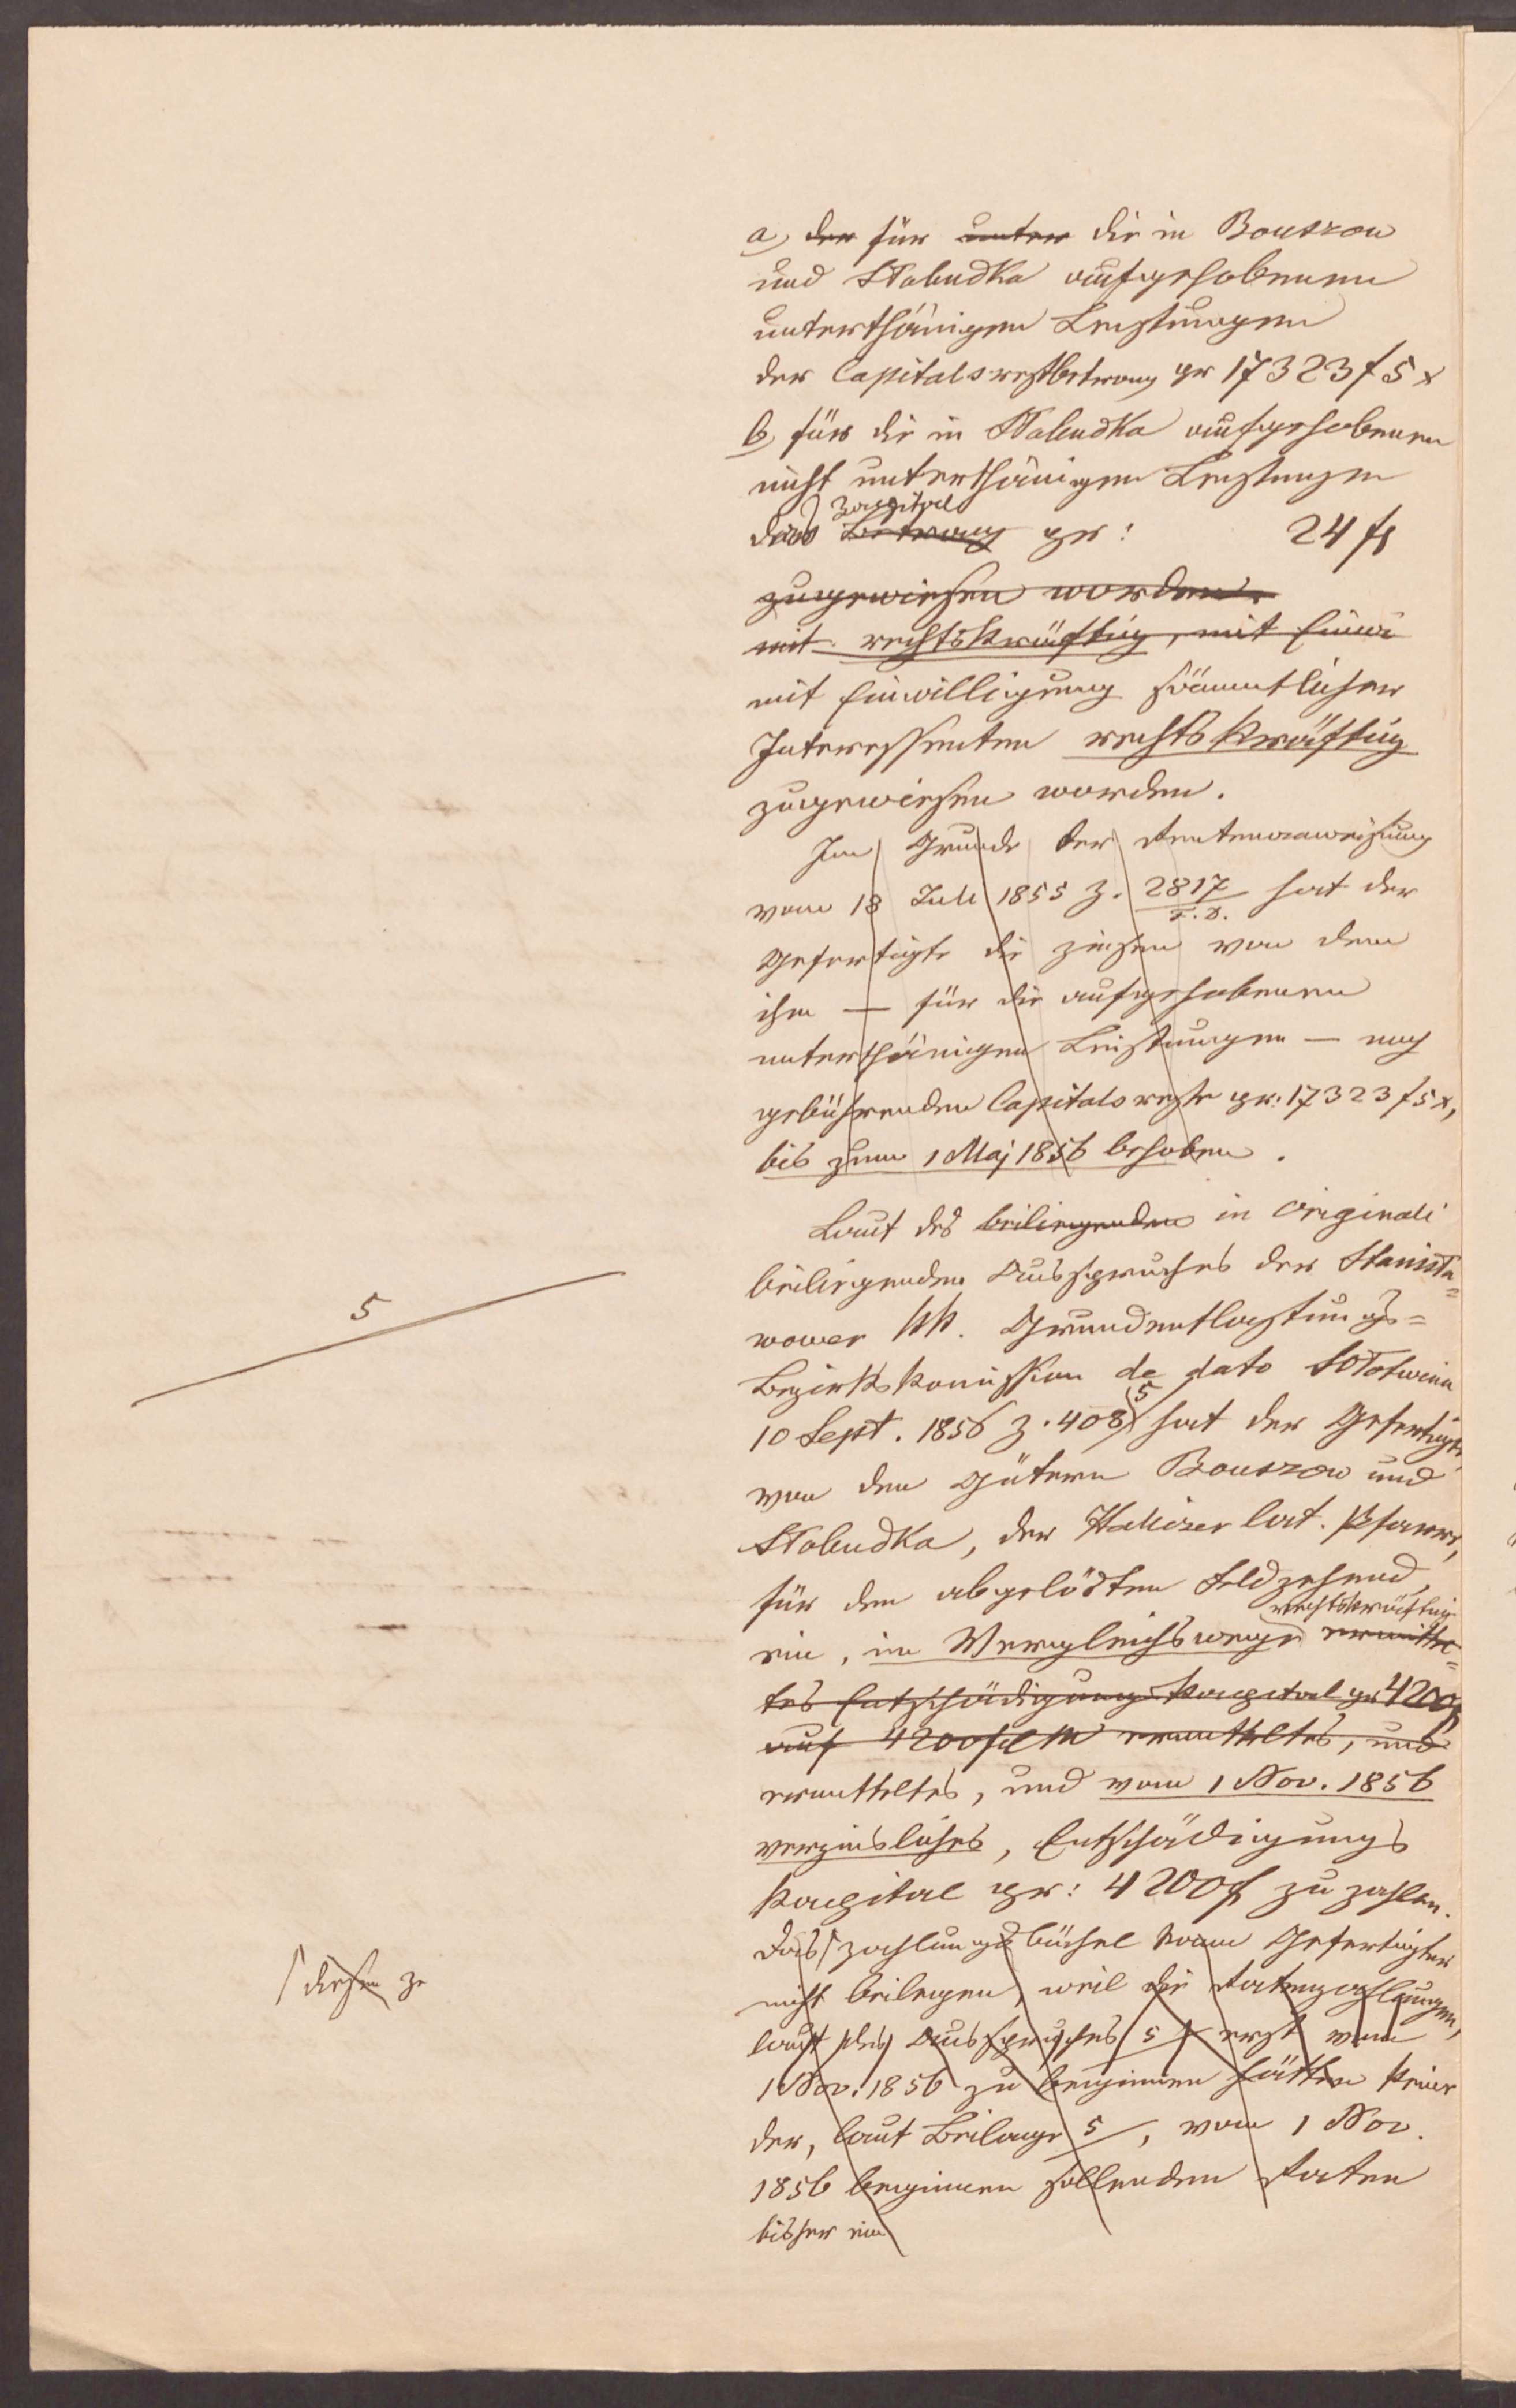 a, der für unter die in Bouszow
und Słobudka aufgehobenen
unterthänigen Leistungen
der Capitalsrestbetrag pr 17323 f 5 x
b, für die in Słobudka aufgehobenen
nicht unterthänigen Leistungen
Kapital
das Betrag pr: 24 f
zugewiesen worden.
mit rechtskräftig, mit Einwi
mit Einwilligung sämmtlicher
Interessenten rechtskräftig
zugewiesen worden.
Im Grunde der Rentenanweisung
vom 18 Juli 1855 Z. 2817 hat der
F. D.
Gefertigte die Zinsen von dem
ihm — für die aufgehobenen
unterthänigen Leistungen — noch
gebührenden Capitalsreste pr: 17323 f 5 x,
bis zum 1 Maj 1856 behoben.
Laut des beiliegenden in originali
5
beiliegenden Ausspruches der Stanisła=
wower kk. Grundentlastungs=
Bezirkskomission de dato Sołotwina
5
10 Sept. 1856 Z. 408 hat der Gefertigte,
von den Gütern Bouszow und
Słobudka, der Haliczer lat. Pfarre,
für den abgelösten Feldzehend,
rechtskräftig
ein, im Vergleichswege ermittel=
tes Entschädigungs Kapital pr 4200 f
auf 4200 f CM ermitteltes, und
ermitteltes, und vom 1 Nov. 1856
verzinsliches, Entschädigungs
Kapital pr: 4200 f zu zahlen.
Das Zahlungsbüchel kann Gefertigter
diesem Ze
nicht beilegen, weil die Ratenzahlungen,
laut des Ausspruches 5 erst vom
1 Nov. 1856 zu beginnen hätten keine
der, laut Beilage 5, vom 1 Nov.
1856 beginnen sollenden Raten
bisher ein